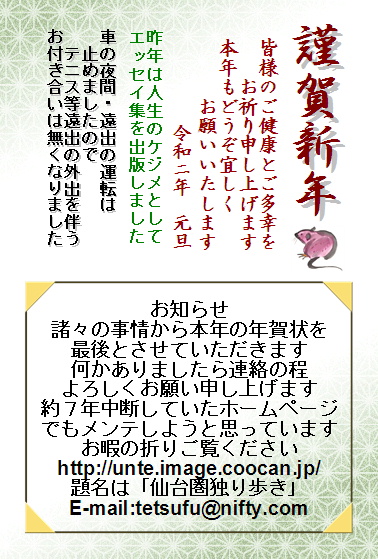 謹賀新年
皆様のご健康とご多幸を
お祈り申し上げます
本年もどうぞ宜しく
お願いいたします
令和二年　元旦
昨年は人生のケジメとして
エッセイ集を出版しました
車の夜間・遠出の運転は
止めましたので
テニス等遠出の外出を伴う
お付き合いは無くなりました
お知らせ
諸々の事情から本年の年賀状を
最後とさせていただきます
何かありましたら連絡の程
よろしくお願い申し上げます
約７年中断していたホームページ
でもメンテしようと思っています
お暇の折りご覧ください
http://unte.image.coocan.jp/
題名は「仙台圏独り歩き」
E-mail:tetsufu@nifty.com